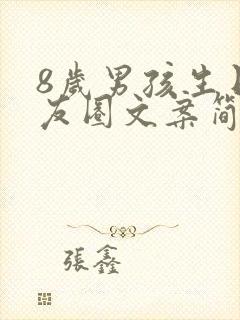 8岁男孩生
友圈文案简
張鑫